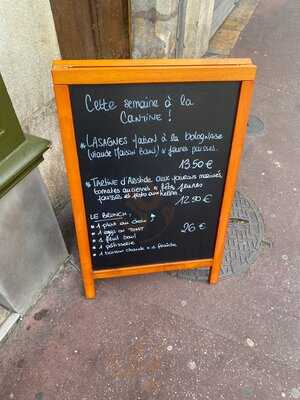 Cette semaine à la
Cantine !
* LASAGNES maison à la bolognaise
(viande Maison
13.50 €
* TARTINE d'Aristide aux poivrons marinés,
tomates anciennes & feta, jeunes
pousses et
12.50 €
LE BRUNCH,
* 1 plat au choix
* 1 eggs on TOAST
* 1 fruit bowl
* 1 pâtisserie
* 1 boisson chaude & 1 fraîche
26 €